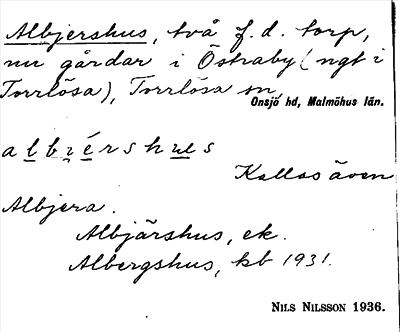 Albjershus, två f.d. torp,
nu gårdar i Östraby (ngt i
Torrlösa), Torrlösa sn,
Onsjö hd, Malmöhus län.
albi̯érshus
Kallas även
Albjera.
Albjärshus, ek.
Albergshus, kb 1931.
NILS NILSSON 1936.